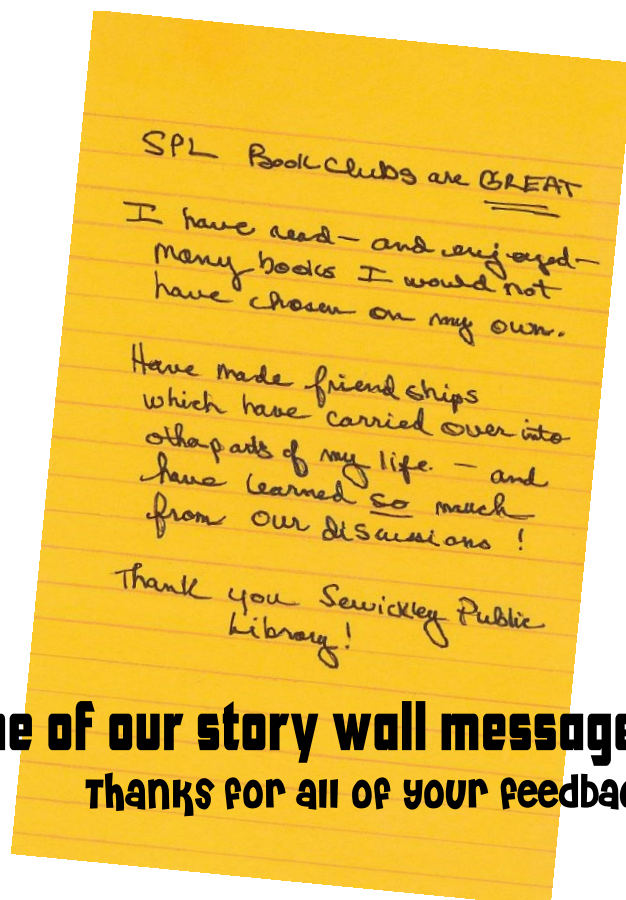 SPL Book Clubs are GREAT
I have read — and enjoyed —
many books I would not
have chosen on my own.
Have made friendships
which have carried over into
other parts of my life. — and
have learned so much
from our discussions!
Thank you Sewickley Public
Library!
ne of our story wall message
Thanks for all of your feedbac